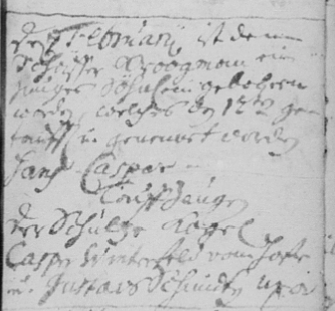 den Februarij ist dem
Schösser Kroogman ein
junges Söhnlein gebohren
worden, welches den 12 ge
taufft u. genennet worden
Hans Caspar
Tauff Zeugen
der Schulze Kagel
Casper Winterfeld vom Hofe
u. Gustavs Schmidts